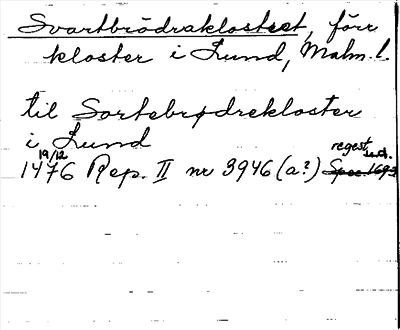 Svartbrödraklostret, förr
kloster i Lund, Malm. l.
til Sortebrødrekloster
i Lund
19/12 regest
1476 Rep. II nr 3946 (a?) s.d.